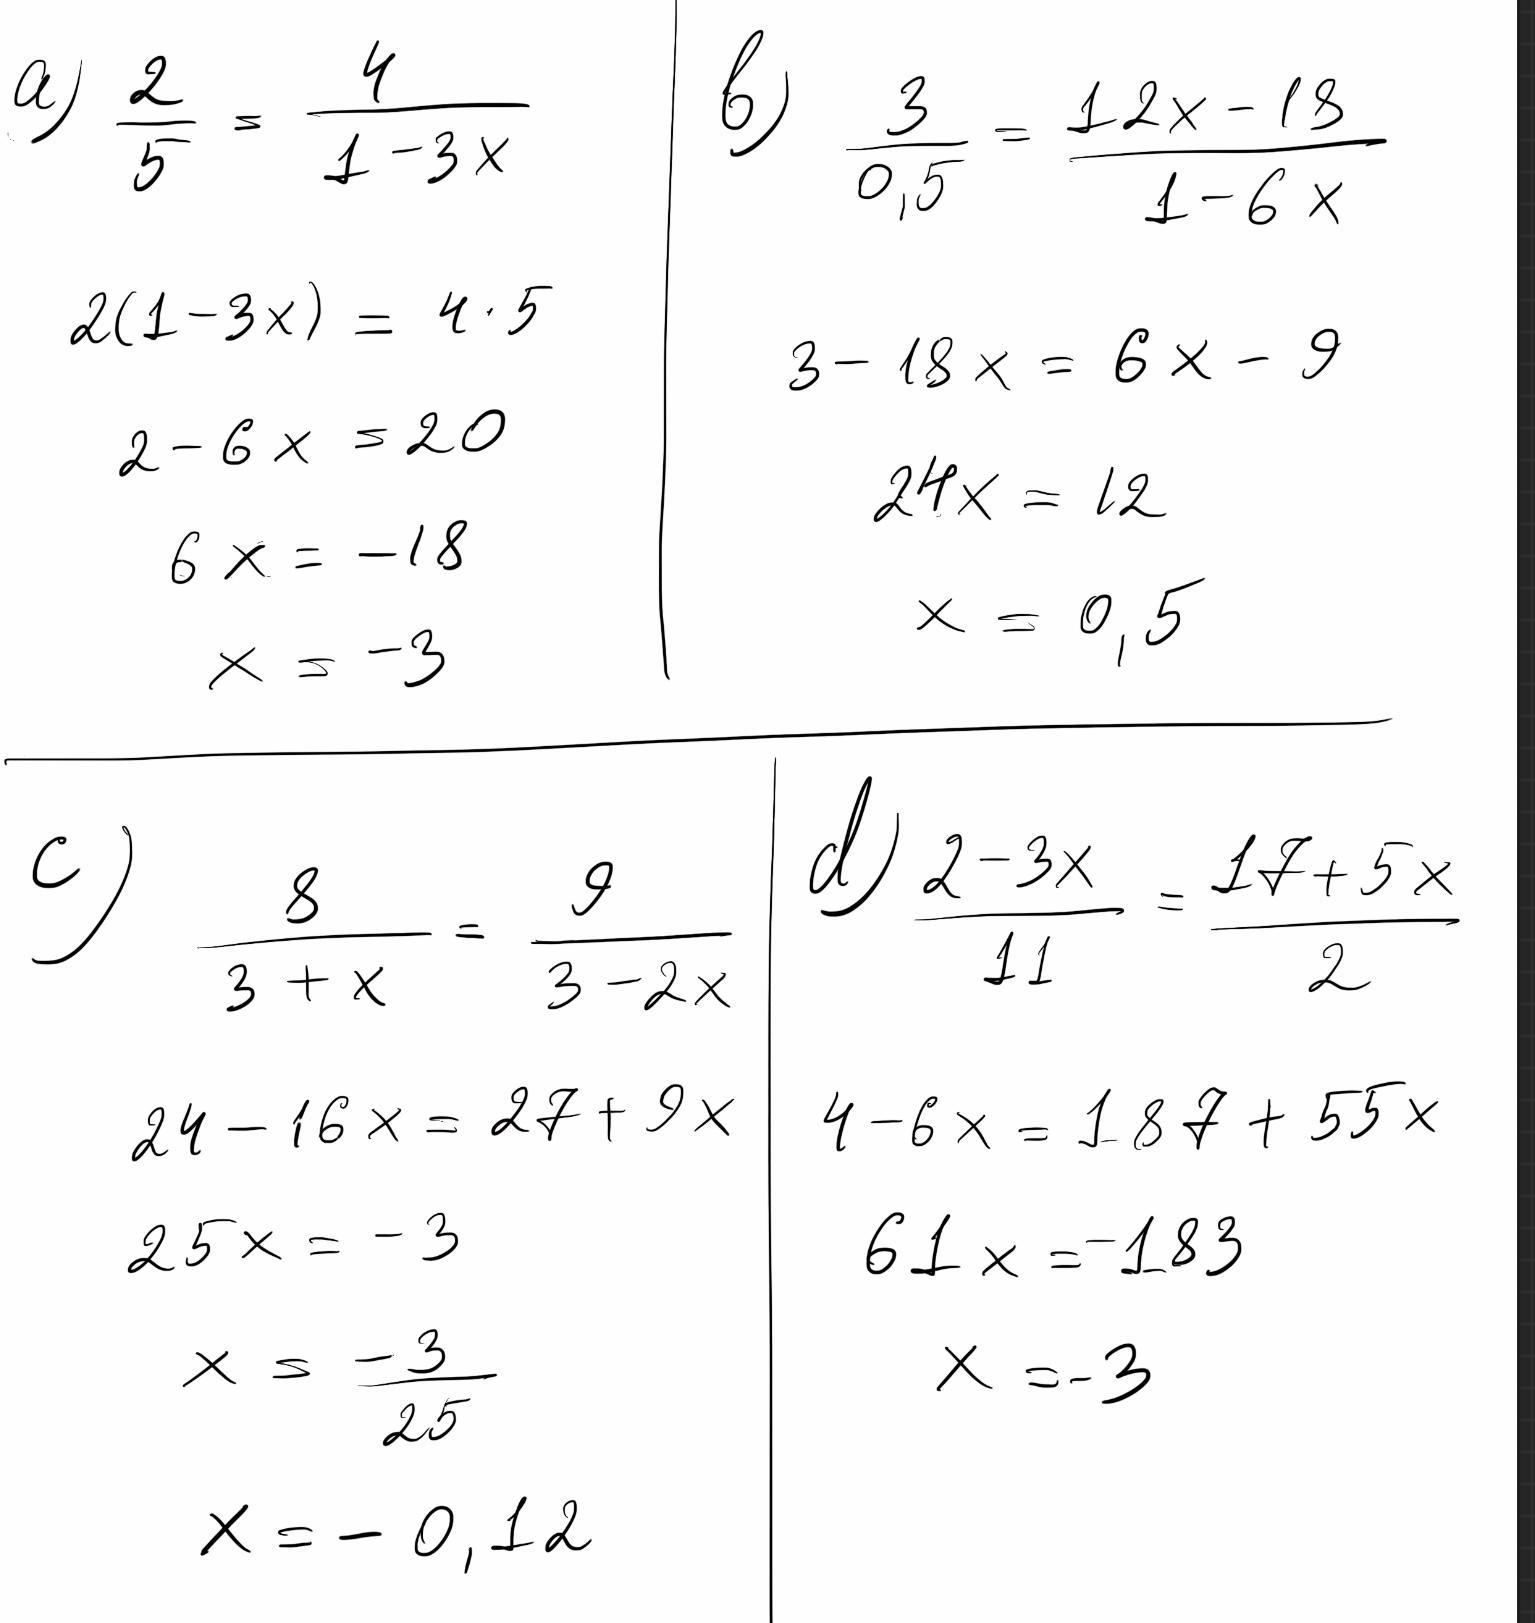 a) 2/5 = 4/(1-3x)
2(1-3x) = 4·5
2-6x = 20
6x = -18
x = -3
b) 3/0,5 = (12x-18)/(1-6x)
3-18x = 6x-9
24x = 12
x = 0,5
c) 8/(3+x) = 9/(3-2x)
24-16x = 27+9x
25x = -3
x = -3/25
x = -0,12
d) (2-3x)/11 = (17+5x)/2
4-6x = 187+55x
61x = -183
x = -3